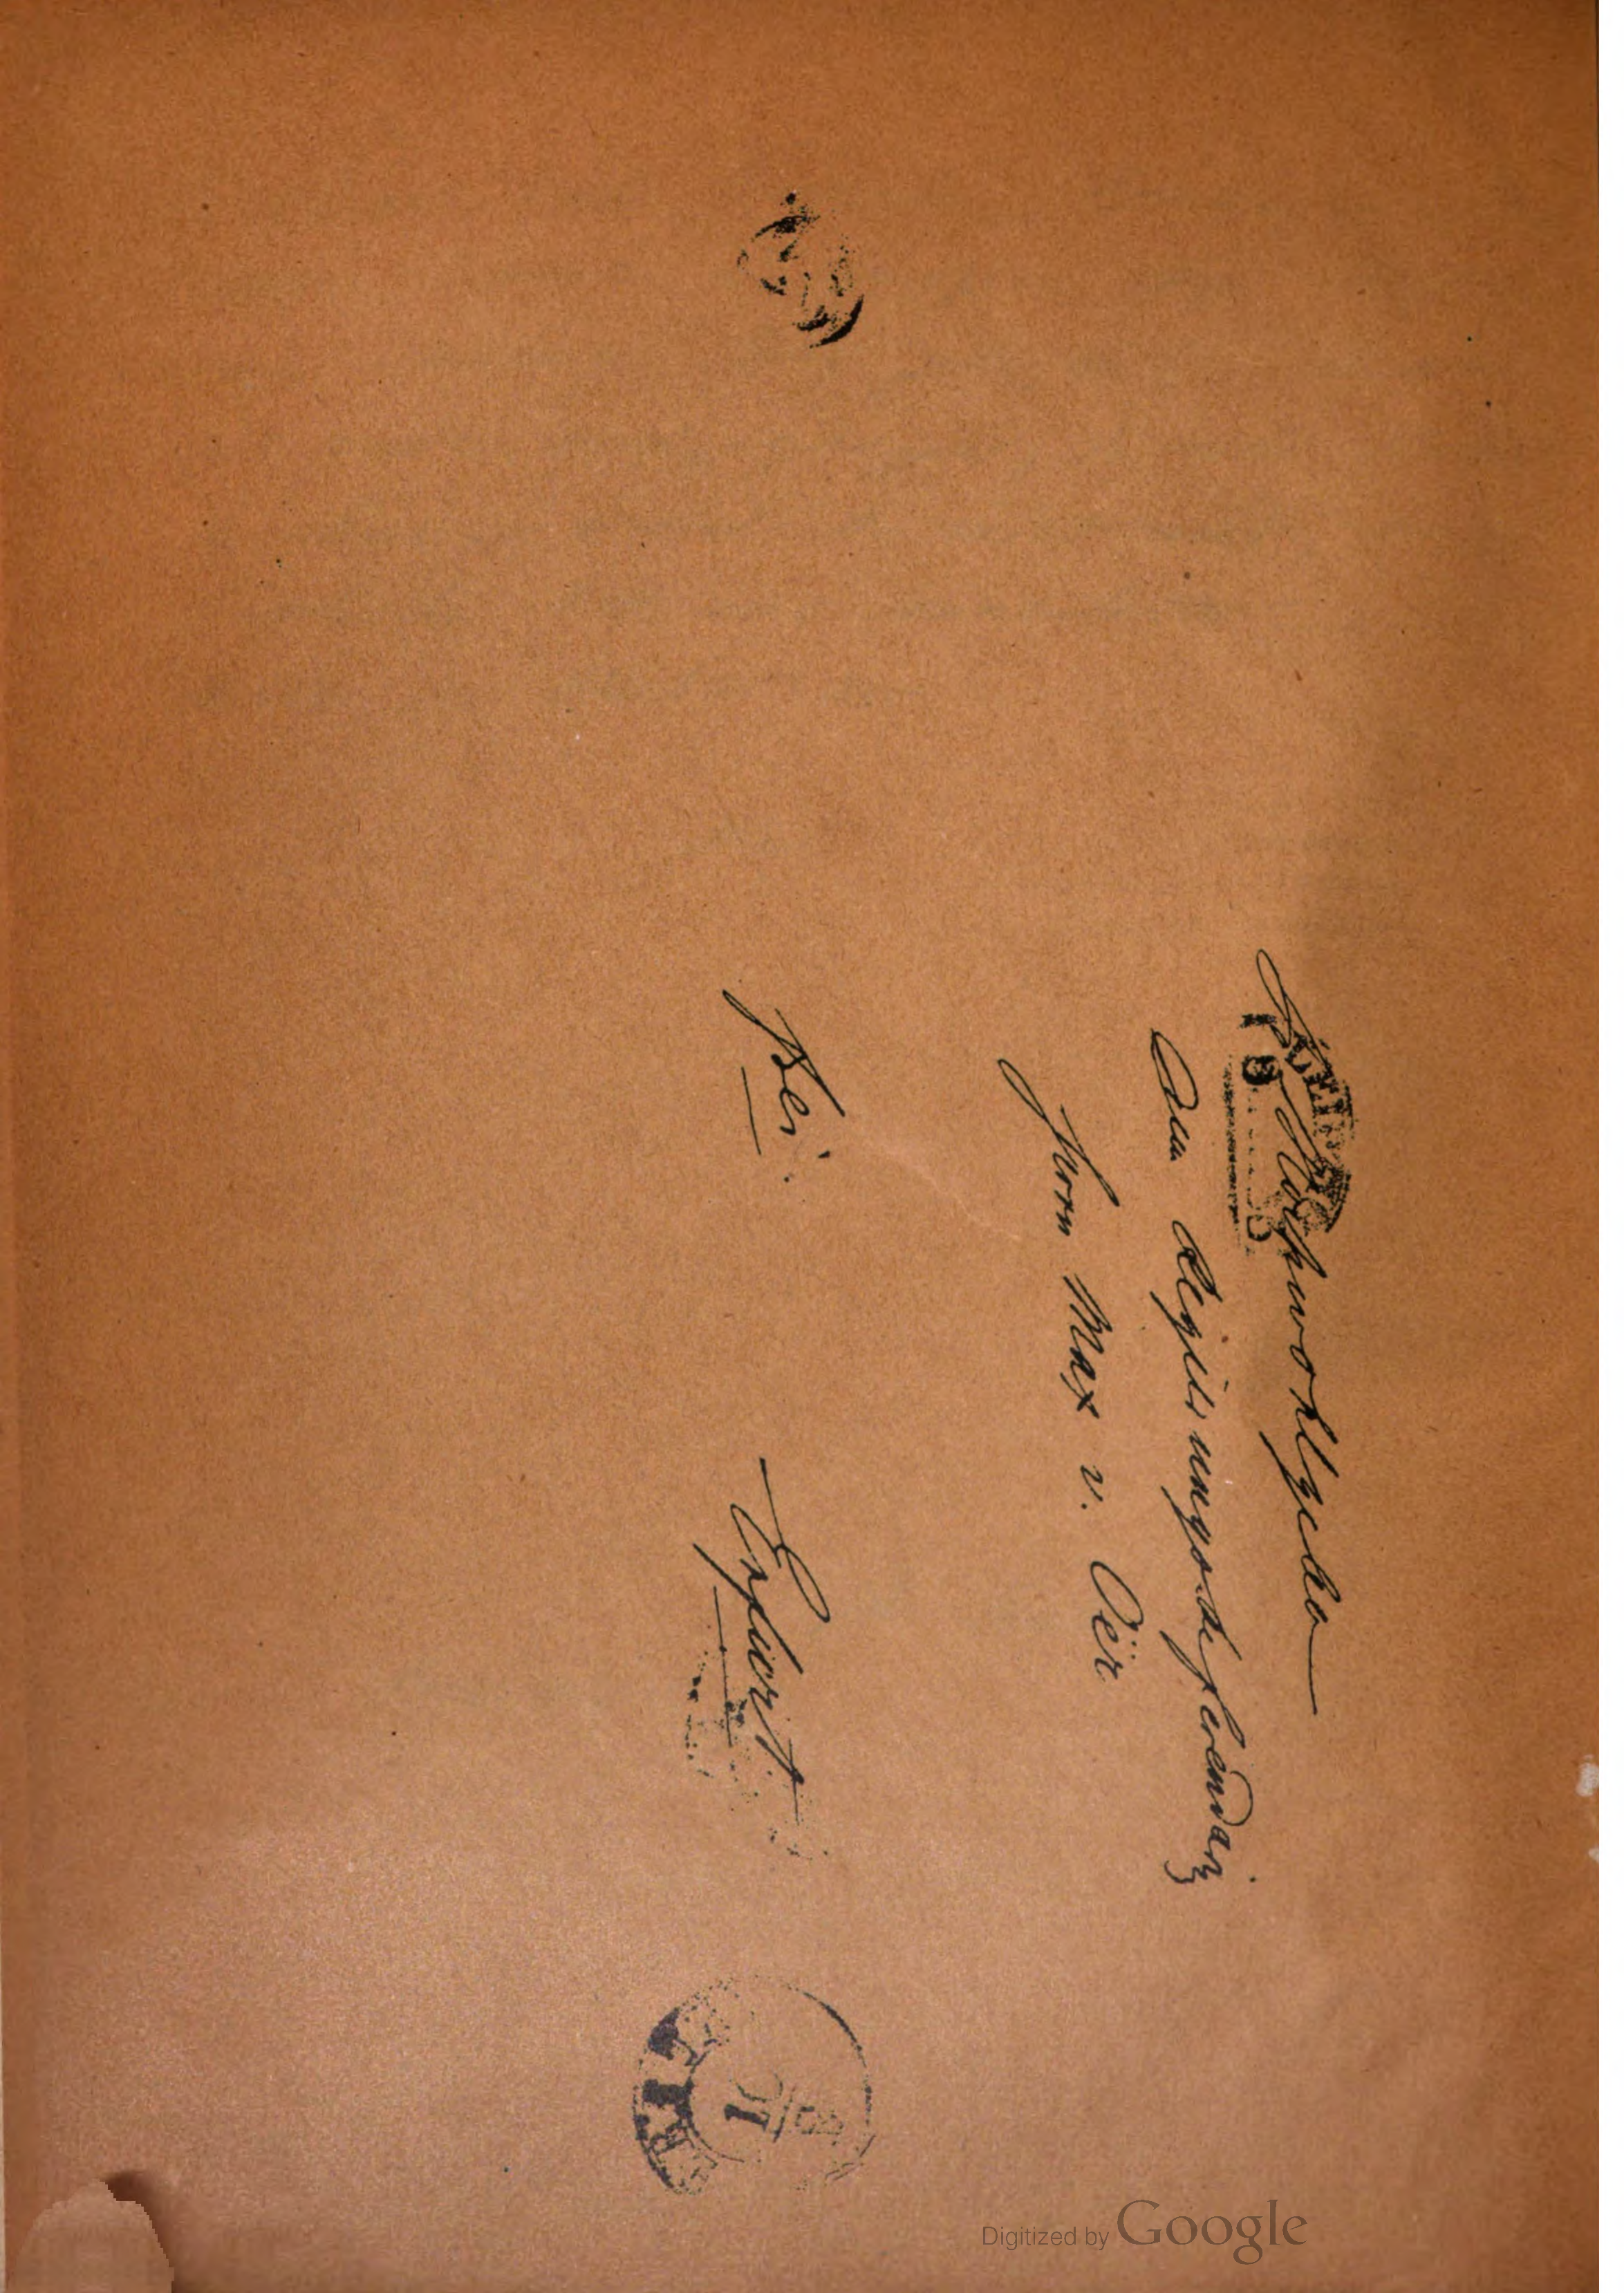 Hochwohlgeboren
dem Regierungsreferendar
Herrn Max v. Oër
frei.
Erfurt
Digitized by Google